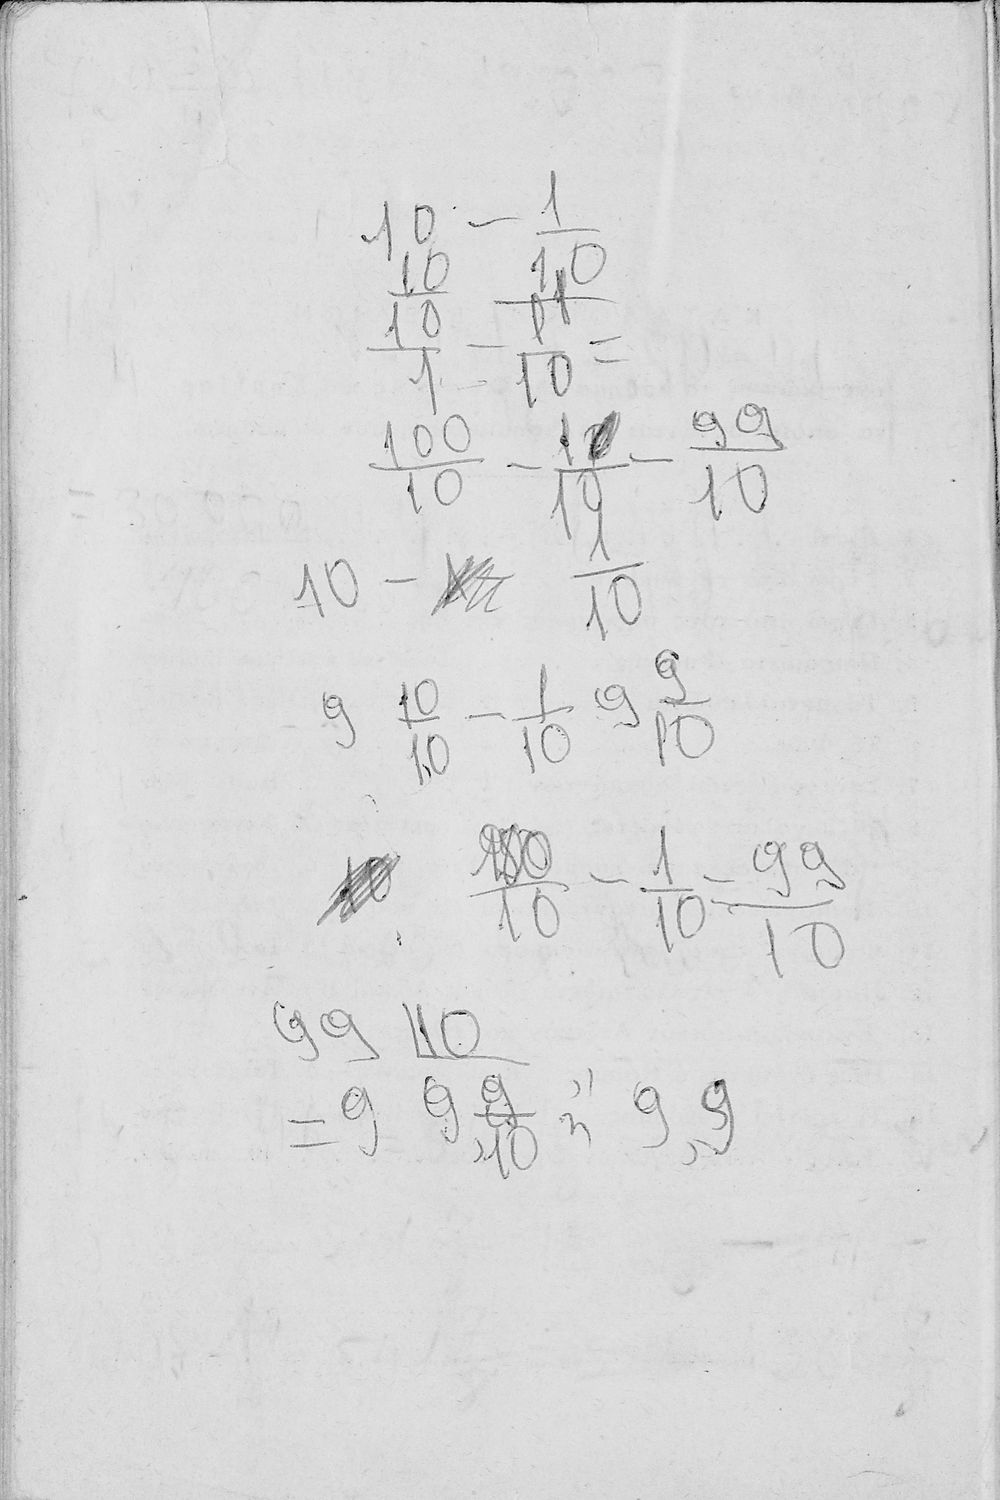 10 - 1/10
10/10
10/1 - 1/10 =
100/10 - 1/10 - 99/10
10 - 1/10
9 10/10 - 1/10 9 9/10
100/10 - 1/10 = 99/10
99 10
= 9 9 9/10 9,9